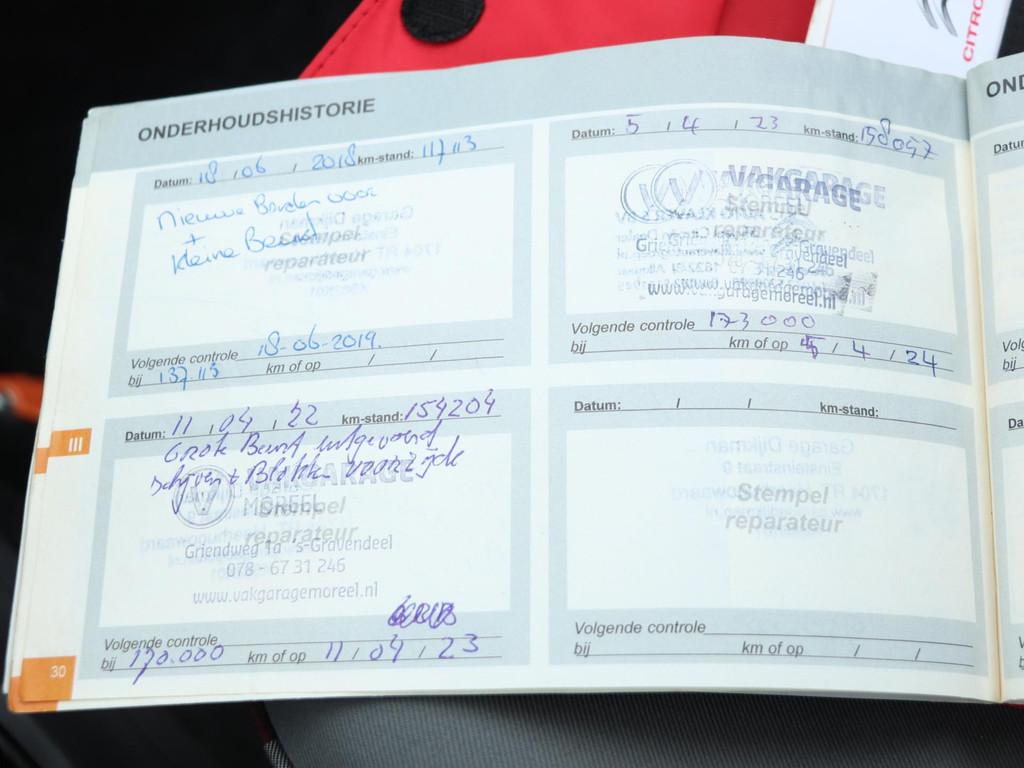 CITRO
ONDERHOUDSHISTORIE
Datum: 18 / 06 / 2018 km-stand: 117113
Nieuwe Banden voor
+
Kleine Beurt
Stempel
reparateur
Volgende controle 18-06-2019.
bij 137113 km of op / /
Datum: 5 / 4 / 23 km-stand: 158097
VAKGARAGE
Stempel
reparateur
's-Gravendeel
31 246
www.vakgaragemoreel.nl
Volgende controle 173000
bij km of op 5 / 4 / 24
Datum: 11 / 04 / 22 km-stand: 154204
Grote Beurt uitgevoerd
schijven + Blokken voorzijde
VAKGARAGE
MOREEL
Stempel
reparateur
Griendweg 1a 's-Gravendeel
078 - 67 31 246
www.vakgaragemoreel.nl
Volgende controle
bij 170.000 km of op 11 / 04 / 23
Datum: / / km-stand:
Stempel
reparateur
Volgende controle
bij km of op / /
III
30
OND
Datu
Volg
bij
Da
Vol
bij